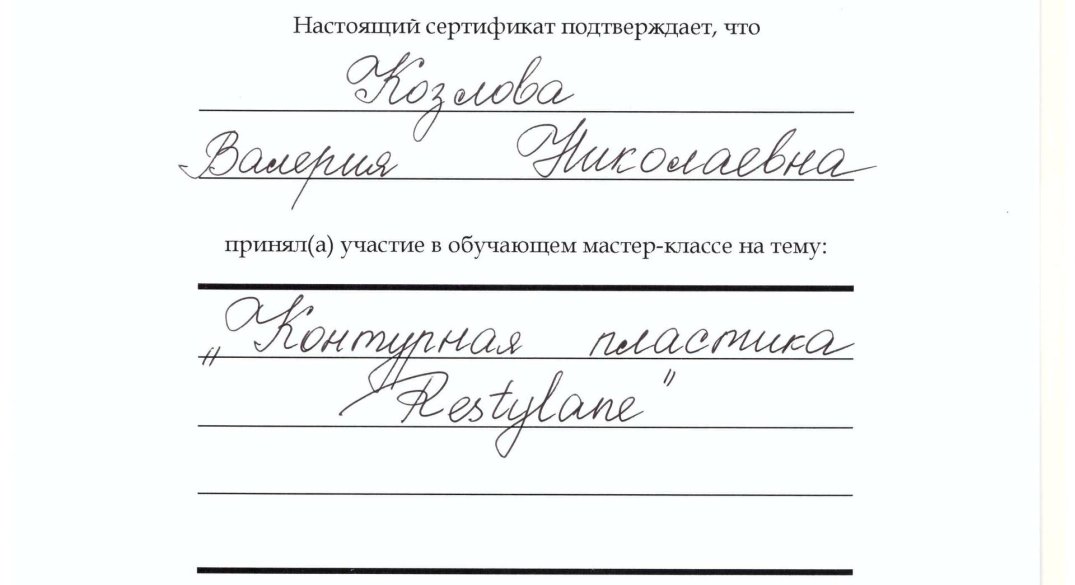 Настоящий сертификат подтверждает, что
Козлова
Валерия Николаевна
принял(а) участие в обучающем мастер-классе на тему:
„Контурная пластика
Restylane"